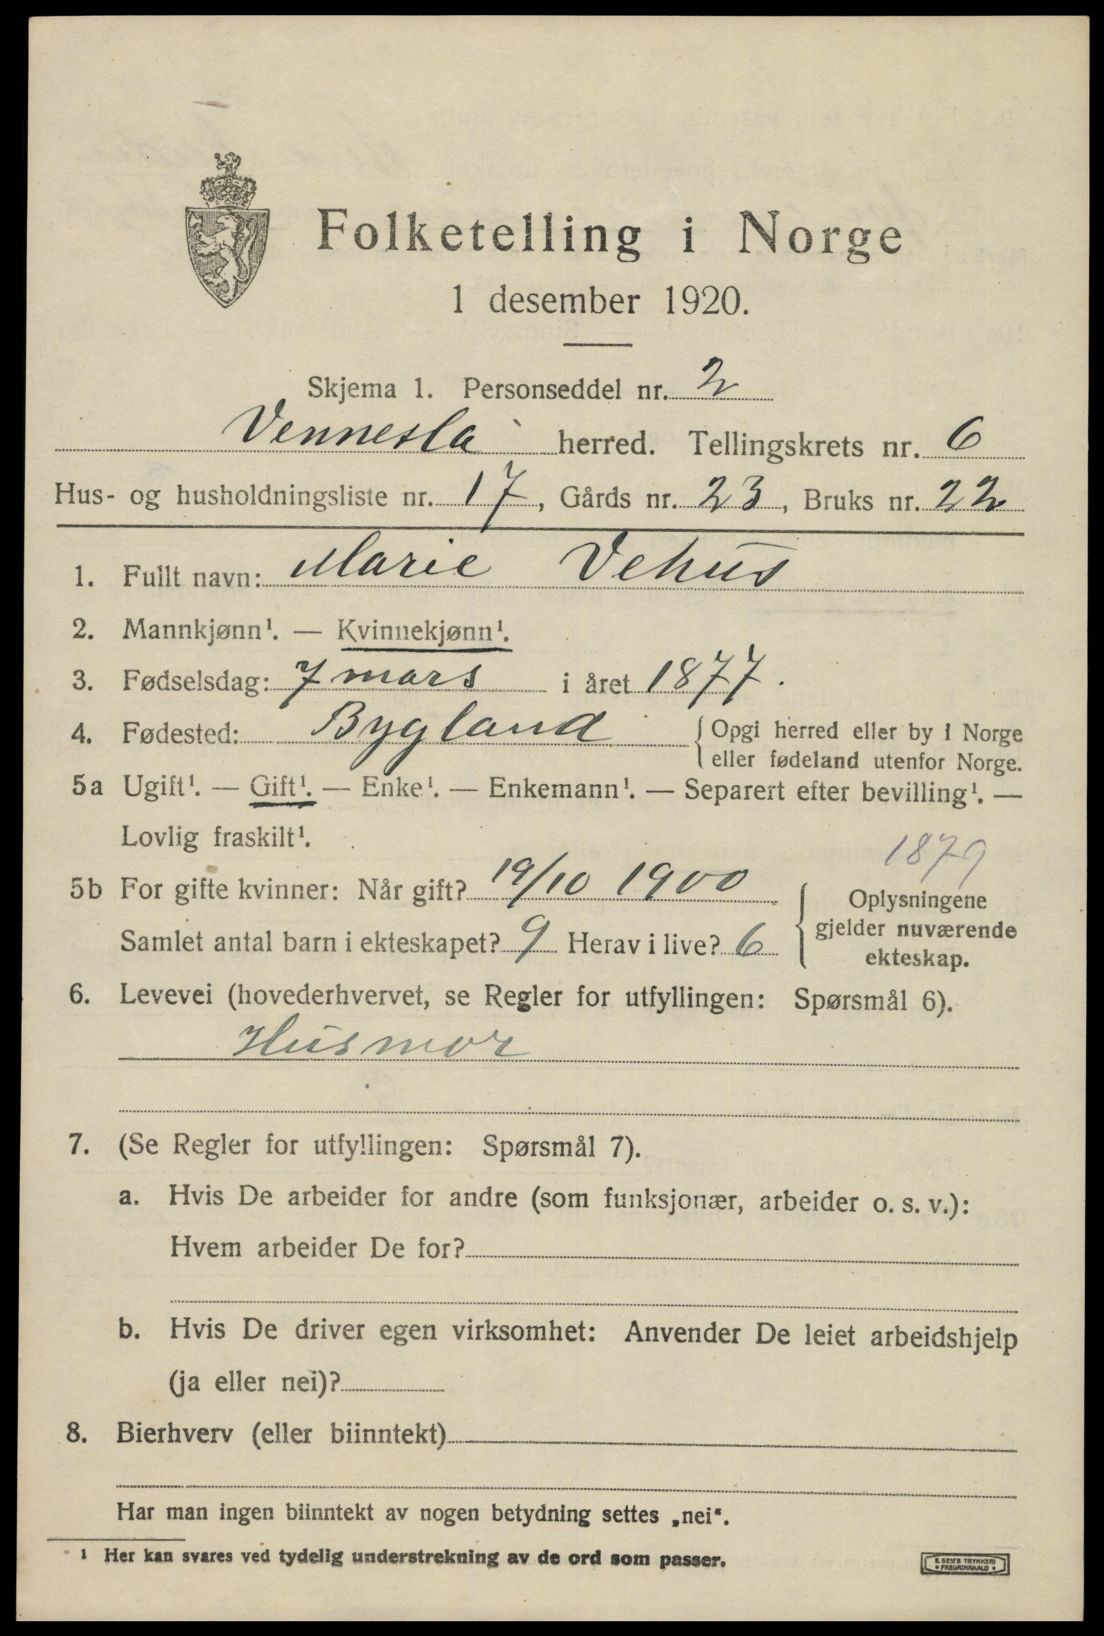 Folketelling i Norge
1 desember 1920.
Skjema 1. Personseddel nr. 2
Vennesla herred. Tellingskrets nr. 6
Hus- og husholdningsliste nr. 17, Gårds nr. 23, Bruks nr. 22
1. Fullt navn: Marie Vehus
2. Mannkjønn¹. — Kvinnekjønn¹.
3. Fødselsdag: 7 mars i året 1877.
4. Fødested: Bygland {Opgi herred eller by i Norge
eller fødeland utenfor Norge.
5a Ugift¹. — Gift¹. — Enke¹. — Enkemann¹. — Separert efter bevilling¹. —
Lovlig fraskilt¹.
1879
5b For gifte kvinner: Når gift? 19/10 1900
Samlet antal barn i ekteskapet? 9 Herav i live? 6
{Oplysningene
gjelder nuværende
ekteskap.
6. Levevei (hovederhvervet, se Regler for utfyllingen: Spørsmål 6).
Husmor
7. (Se Regler for utfyllingen: Spørsmål 7).
a. Hvis De arbeider for andre (som funksjonær, arbeider o. s. v.):
Hvem arbeider De for?
b. Hvis De driver egen virksomhet: Anvender De leiet arbeidshjelp
(ja eller nei)?
8. Bierhverv (eller biinntekt)
Har man ingen biinntekt av nogen betydning settes „nei“.
¹ Her kan svares ved tydelig understrekning av de ord som passer.
E. SEM'S TRYKKERI
• FREDRIKSHALD •